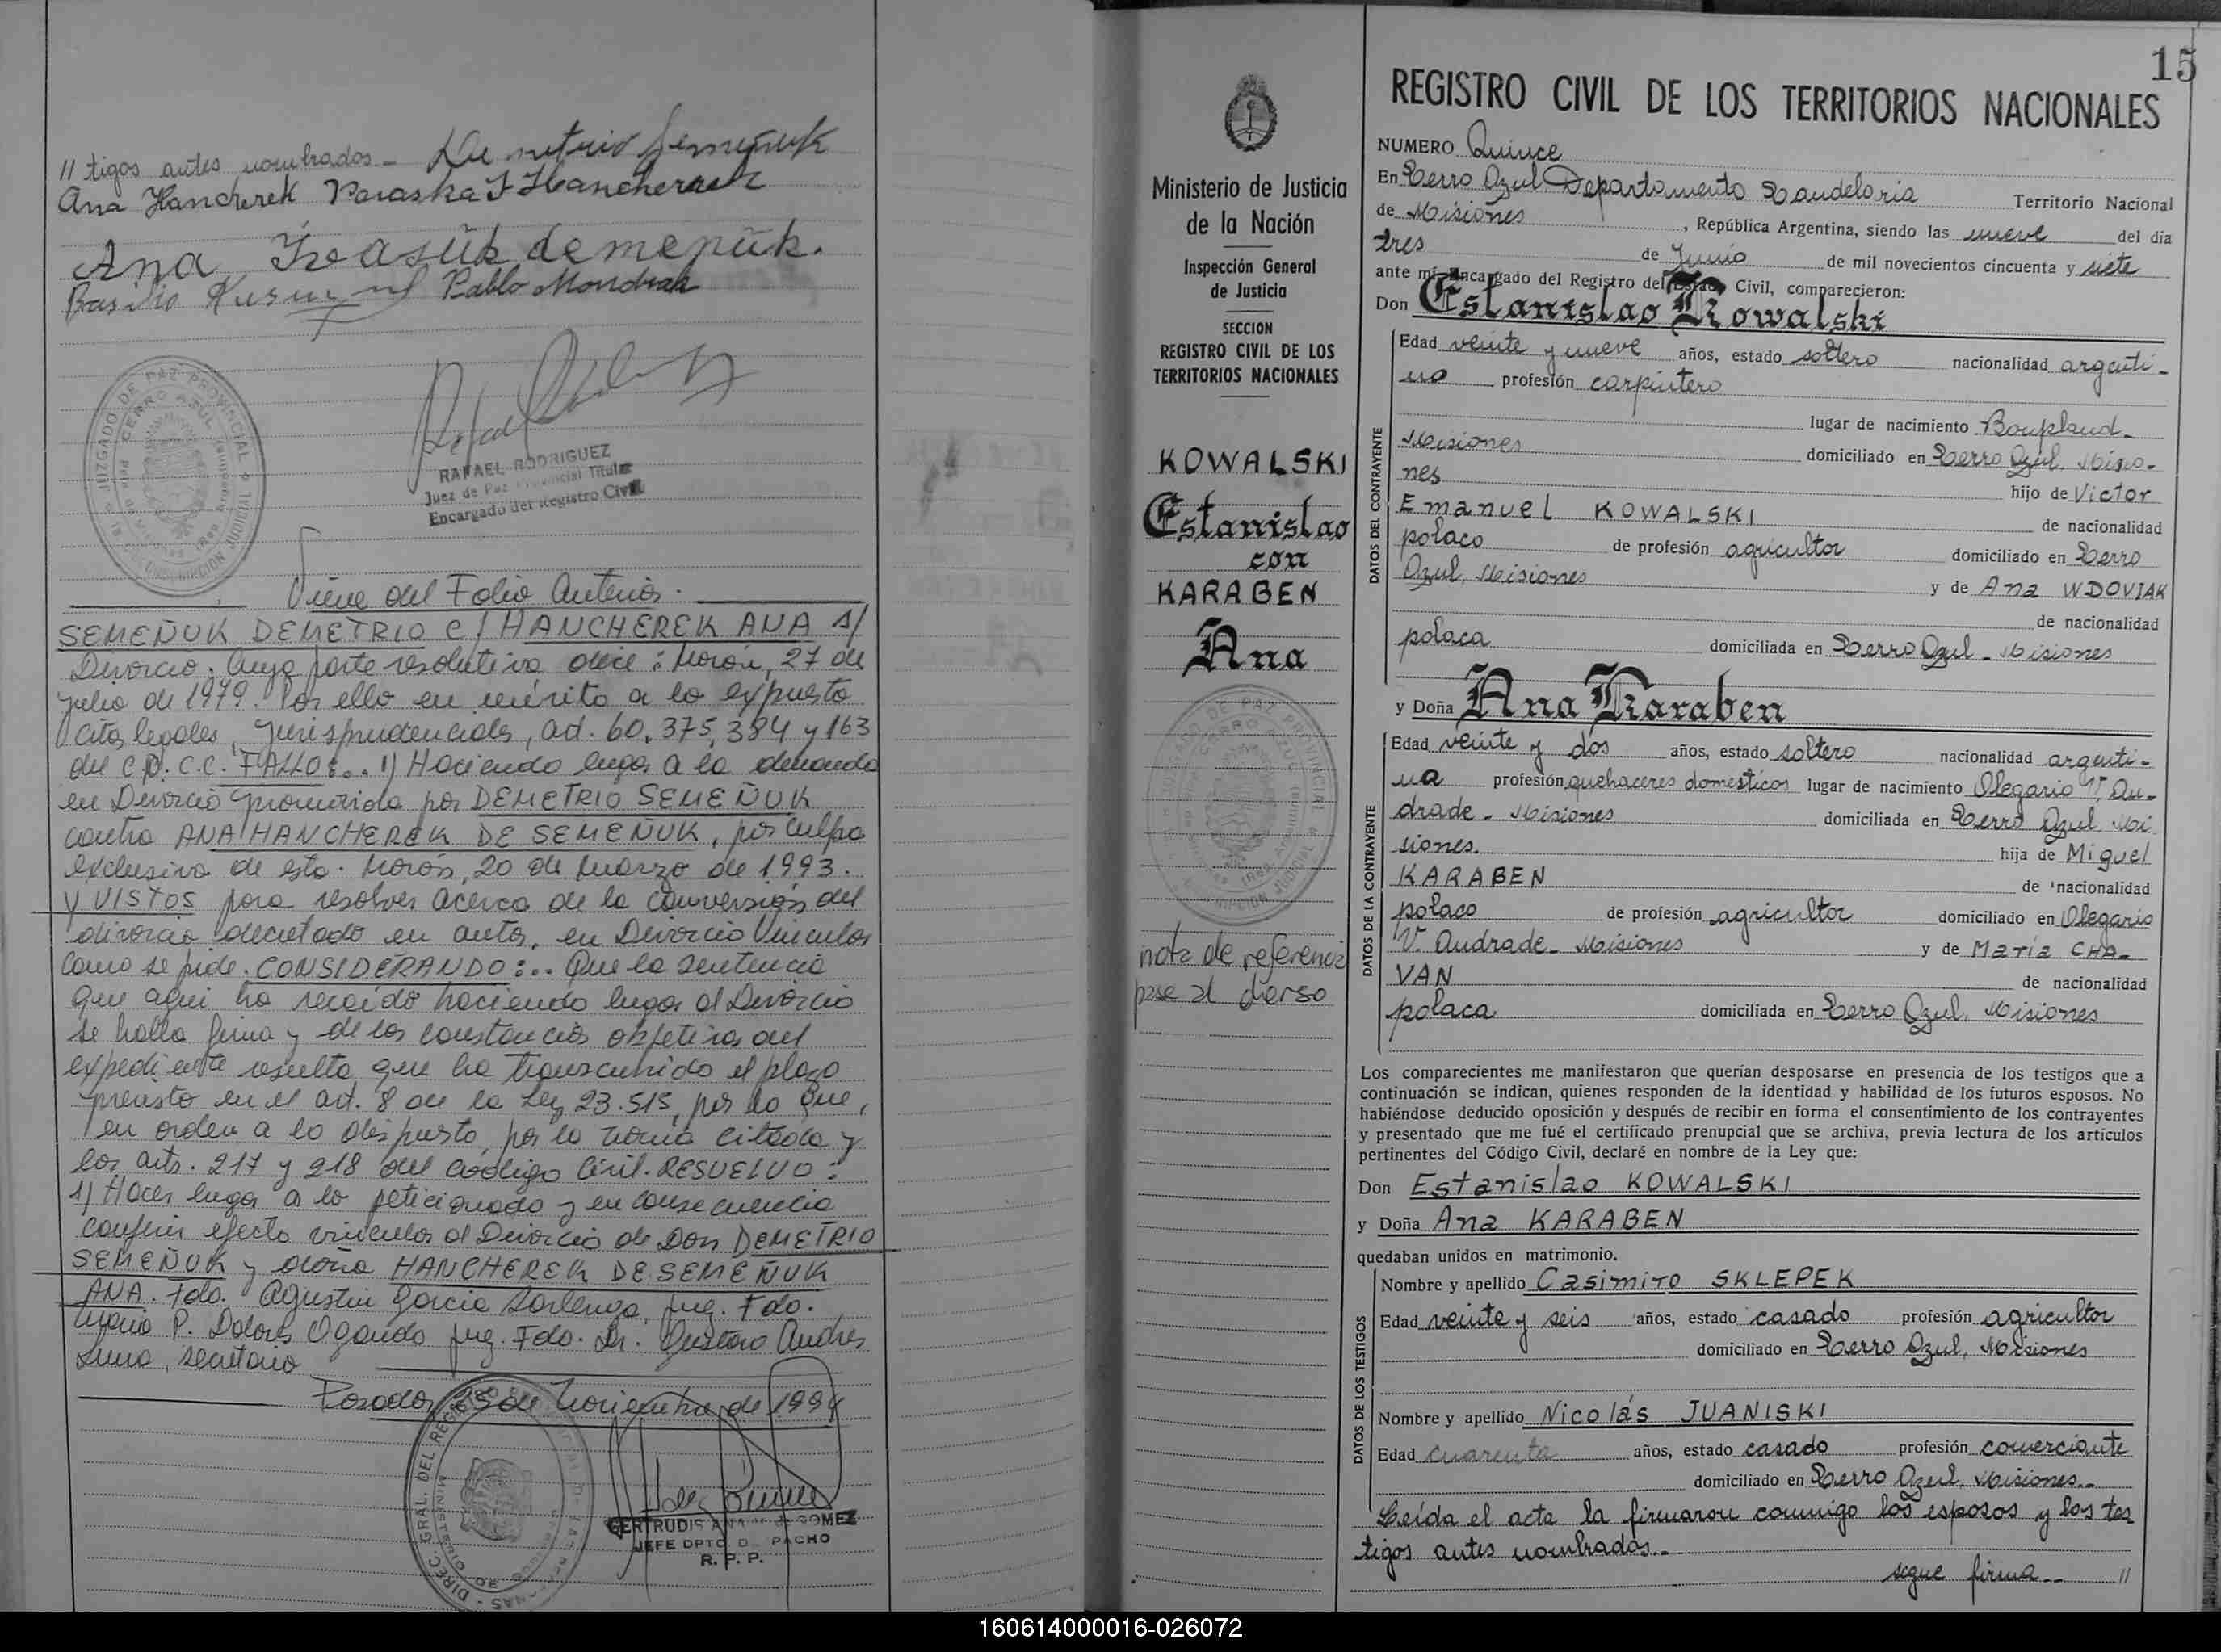 // tigos antes nombrados.- Demetrio Semeñuk
Ana Hancherek Paraska I Hancherek
Ana Iwasiuk de
Basilio Pablo Mondrak
JUZGADO DE PAZ PROVINCIAL
CERRO AZUL
RAFAEL RODRIGUEZ
Juez de Paz Provincial Titular
Encargado del Registro Civil
Viene del Folio Anterior.
SEMEÑUK DEMETRIO C/ HANCHEREK ANA S/
Divorcio. Cuya parte resolutiva dice: Morón, 27 de
julio de 1979. Por ello en mérito a lo expuesto
citas legales, jurisprudenciales, art. 60, 375, 384 y 163
del C.P.C.C. FALLO:.. 1) Haciendo lugar a la demanda
en Divorcio promovida por DEMETRIO SEMEÑUK
contra ANA HANCHEREK DE SEMEÑUK, por culpa
exclusiva de esta. Morón, 20 de Marzo de 1993.
Y VISTOS para resolver acerca de la conversión del
divorcio decretado en autos, en Divorcio Vincular
como se pide. CONSIDERANDO:.. Que la sentencia
que aquí ha recaído haciendo lugar al Divorcio
se halla firme y de las constancias objetivas del
expediente resulta que ha transcurrido el plazo
previsto en el art. 8 de la Ley 23.515, por lo que,
en orden a lo dispuesto por la norma citada y
los arts. 217 y 218 del código Civil. RESUELVO:
1) Hacer lugar a lo peticionado y en consecuencia
conferir efecto vincular al Divorcio de Don DEMETRIO
SEMEÑUK y doña HANCHEREK DE SEMEÑUK
ANA. Fdo. Agustin Garcia juez. Fdo.
Maria P. Dolores Ogando juez. Fdo. Dr. Gustavo Andres
Luna, secretario
Posadas, 25 de Noviembre de 1994
DIREC. GRAL. DEL REG
GERTRUDIS GOMEZ
JEFE DPTO. DESPACHO
R. P. P.
15
Ministerio de Justicia
de la Nación
Inspección General
de Justicia
SECCION
REGISTRO CIVIL DE LOS
TERRITORIOS NACIONALES
KOWALSKI
Estanislao
con
KARABEN
Ana
JUZGADO DE PAZ PROVINCIAL
CERRO AZUL
nota de referencia
pase al dorso
REGISTRO CIVIL DE LOS TERRITORIOS NACIONALES
NUMERO Quince
En Cerro Azul Departamento Candelaria Territorio Nacional
de Misiones, República Argentina, siendo las nueve del día
tres de Junio de mil novecientos cincuenta y siete
ante mí, Encargado del Registro del Estado Civil, comparecieron:
Don Estanislao Kowalski
DATOS DEL CONTRAYENTE
Edad veinte y nueve años, estado soltero nacionalidad argenti-
no profesión carpintero
lugar de nacimiento Bonpland-
Misiones domiciliado en Cerro Azul, Misio-
nes hijo de Victor
Emanuel KOWALSKI de nacionalidad
polaco de profesión agricultor domiciliado en Cerro
Azul, Misiones y de Ana WDOVIAK
de nacionalidad
polaca domiciliada en Cerro Azul - Misiones
y Doña Ana Karaben
DATOS DE LA CONTRAYENTE
Edad veinte y dos años, estado soltero nacionalidad argenti-
na profesión quehaceres domesticos lugar de nacimiento Olegario V. An-
drade - Misiones domiciliada en Cerro Azul, Mi
siones. hija de Miguel
KARABEN de nacionalidad
polaco de profesión agricultor domiciliado en Olegario
V. Andrade - Misiones y de Maria CHA-
VAN de nacionalidad
polaca domiciliada en Cerro Azul, Misiones
Los comparecientes me manifestaron que querían desposarse en presencia de los testigos que a
continuación se indican, quienes responden de la identidad y habilidad de los futuros esposos. No
habiéndose deducido oposición y después de recibir en forma el consentimiento de los contrayentes
y presentado que me fué el certificado prenupcial que se archiva, previa lectura de los artículos
pertinentes del Código Civil, declaré en nombre de la Ley que:
Don Estanislao KOWALSKI
y Doña Ana KARABEN
quedaban unidos en matrimonio.
DATOS DE LOS TESTIGOS
Nombre y apellido Casimiro SKLEPEK
Edad veinte y seis años, estado casado profesión agricultor
domiciliado en Cerro Azul, Misiones
Nombre y apellido Nicolás JUANISKI
Edad cuarenta años, estado casado profesión comerciante
domiciliado en Cerro Azul, Misiones.-
Leída el acta la firmaron conmigo los esposos y los tes
tigos antes nombrados.-
segue firma.- //
160614000016-026072